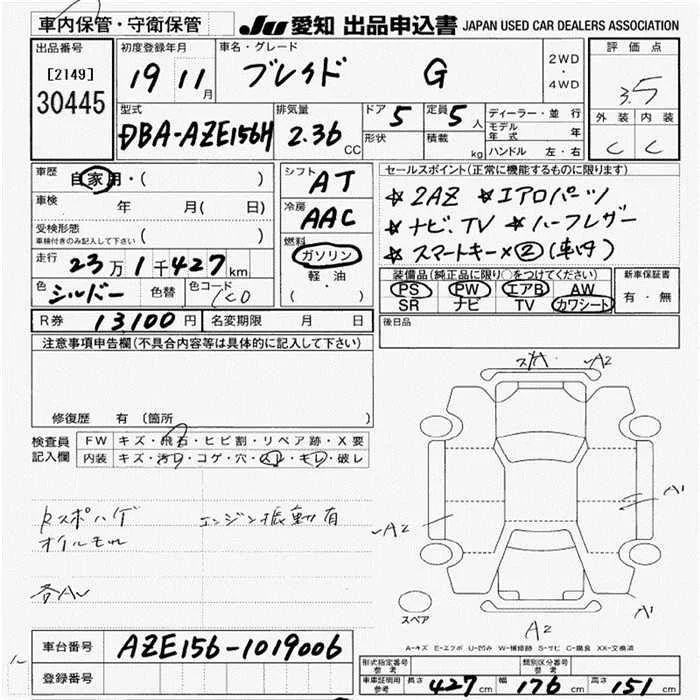 車内保管・守衛保管
JU 愛知 出品申込書 JAPAN USED CAR DEALERS ASSOCIATION
出品番号
[2149]
30445
初度登録年月
19 11月
車名・グレード
ブレイド G
2WD
・
4WD
評価点
3.5
外装 内装
C C
型式
DBA-AZE156H
排気量
2.36 CC
ドア 5
定員 5人
形状
積載 kg
ディーラー・並行
モデル年式 年
ハンドル 左・右
車歴
自家用・( )
車検 年 月( 日)
受検形態
車検付きのみ記入して下さい ( )
走行
23万1千427km
色 シルバー 色替 色コード 1C0
シフト AT
冷房 AAC
燃料
ガソリン
軽・油
( )
セールスポイント(正常に機能するものに限ります)
☆ 2AZ ☆ エアロパーツ
☆ ナビ、TV ☆ ハーフレザー
☆ スマートキー×② (車付)
装備品(純正品に限り○をつけてください)
PS PW エアB AW
SR ナビ TV カワシート
新車保証書
有・無
R券 13,100円 名変期限 月 日
後日品
注意事項申告欄(不具合内容等は具体的に記入して下さい)
修復歴 有 (箇所 )
検査員記入欄
FW キズ・飛石・ヒビ割・リペア跡・X要
内装 キズ・汚レ・コゲ・穴・スレ・キレ・破レ
エンジン振動有
オイルモレ
A2
A1
A2
A1
A2
スペア
A-キズ E-エクボ U-凹み W-補修跡 S-サビ C-腐食 XX-交換済
車台番号 AZE156-1019006
登録番号
形式指定番号 参考
類別区分番号 参考
車車証明用 参考 長さ 427cm 幅 176cm 高さ 151cm